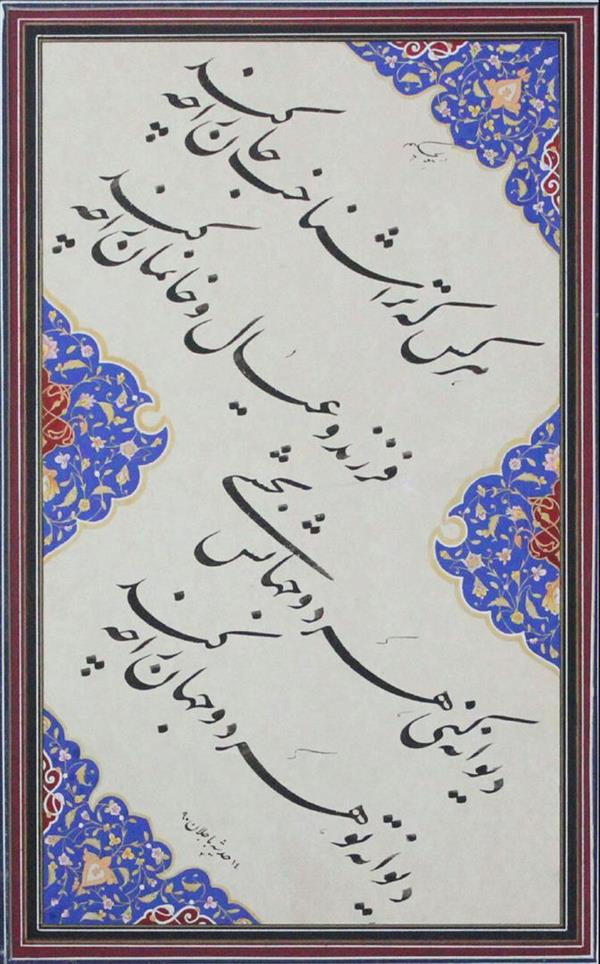 هر کس که ترا شناخت جان را چه کند
فرزند و عیال و خانمان را چه کند
دیوانه کنی هر دو جهانش بخشی
دیوانه تو هر دو جهان را چه کند
باجلان ۹۰